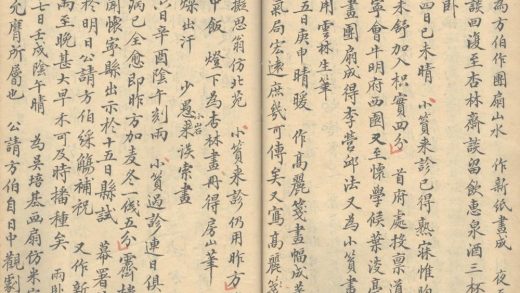 為方伯作團扇山水 作新紙畫成 夜
談回復至杏林齋談留飲惠泉酒三杯
卧
四日己未晴 小篔来診已得熟寐惟
未舒加入枳實四分 首府處投稟
寧會牛明府西園又至懐學候葉淩
畫團扇成得李營邱法又為小篔畫
用雲林生筆
五日庚申晴暖 作高麗箋畫幅成
氣局宏遠庶幾可傳矣又寫高麗箋
擬思翁仿北苑 小篔来診仍用昨方
中飯 燈下為杏林畫册得房山筆
燥出汗 少愚来談索畫
六日辛酉陰午刻雨 小篔過診連日俱
病已全愈即昨方加麥冬一錢五分
閲懷寧縣出示於十五日縣試
於明日公請方伯綵觴補祝 幕署
而至晚甚大早木可及時播種矣 雨
七日壬戌陰午晴 為吳培基畫扇仿米
又作新
公請方伯自日中觀劇
充膺所屬也